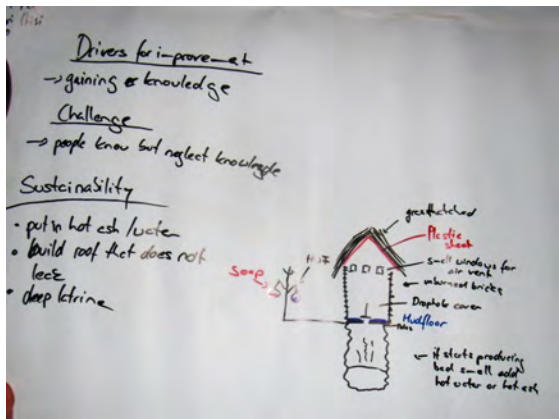 Drivers for improvement
→ gaining knowledge
Challenge
→ people know but neglect knowledge
Sustainability
• put in hot ash/water
• build roof that does not
leak
• deep latrine
grassthatched
Plastic
sheet
small windows for
air vent
unburned bricks
Drophole cover
Mudfloor
soap
if starts producing
bad smell add
hot water or hot ash